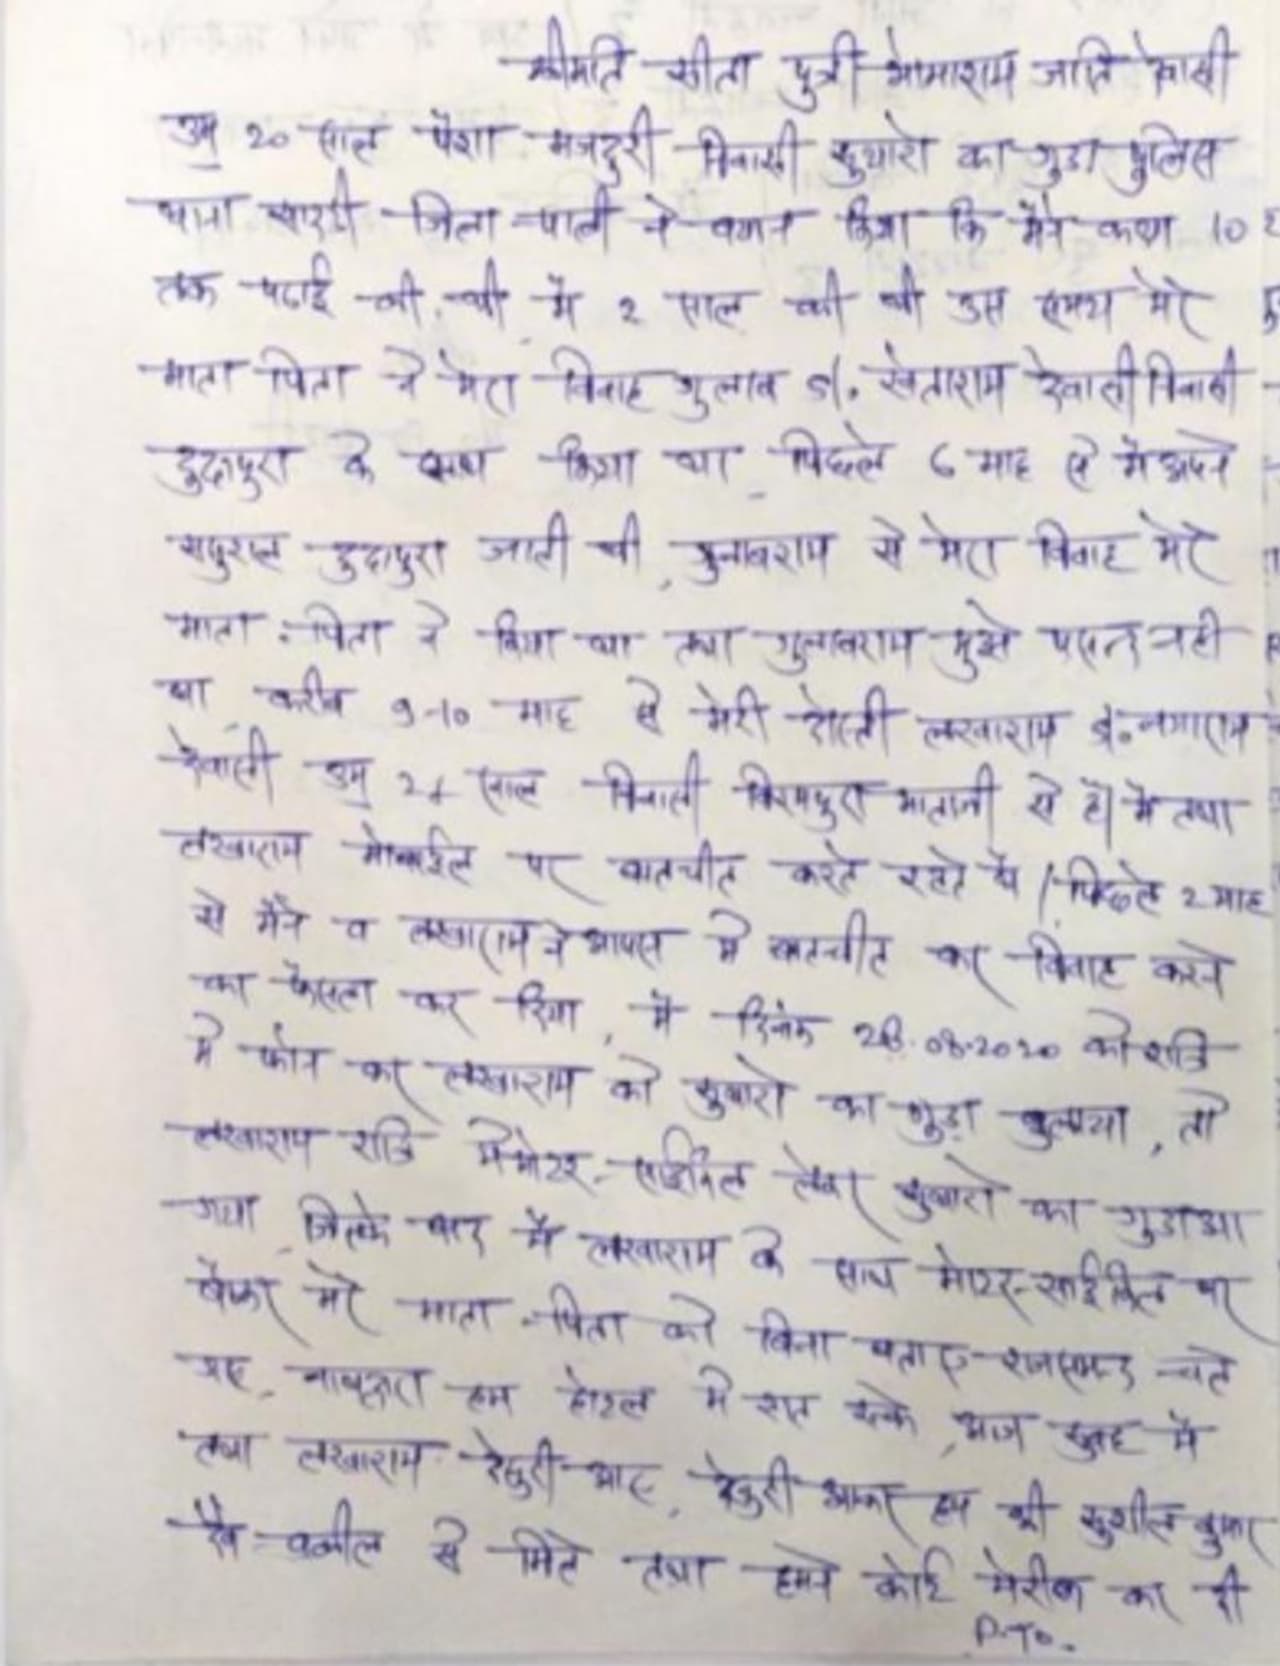 श्रीमति सीता पुत्री भोमाराम जाति रेबारी
उम्र 20 साल पेशा मजदुरी निवासी कुम्पारो का गुडा पुलिस
थाना सादडी जिला पाली ने बयान किया कि मैने कक्षा 10
तक पढाई की थी मै 2 साल की थी उस समय मेरे
माता पिता ने मेरा विवाह गुलाब S/o खेताराम देवासी निवासी
दुदापुरा के साथ किया था पिछले 6 माह से मै अपने
ससुराल दुदापुरा जाती थी, गुलाबराम से मेरा विवाह मेरे
माता-पिता ने किया था तथा गुलाबराम मुझे पसन्द नही
था करीब 9-10 माह से मेरी दोस्ती लखाराम S/o नगाराम
देवासी उम्र 24 साल निवासी विरमपुरा माताजी से है। मै तथा
लखाराम मोबाईल पर बातचीत करते रहते थे। पिछले 2 माह
से मैने व लखाराम ने आपस मे बातचीत कर विवाह करने
का फैसला कर दिया, मै दिनांक 28.08.2020 को रात्रि
मे फोन कर लखाराम को का गुडा बुलाया, तो
लखाराम रात्रि मे मोटर-साईकिल लेकर का गुडा आ
गया, जिसके बाद मै लखाराम के साथ मोटर-साईकिल पर
बैठकर मेरे माता-पिता को बिना बताए राजसमन्द चले
गए, हम होटल मे रात रुके, आज सुबह मै
तथा लखाराम देसुरी आए, देसुरी आकर हम श्री सुशील कुमार
वकील से मिले तथा हमने कोर्ट मेरीज कर दी
P.T.O.